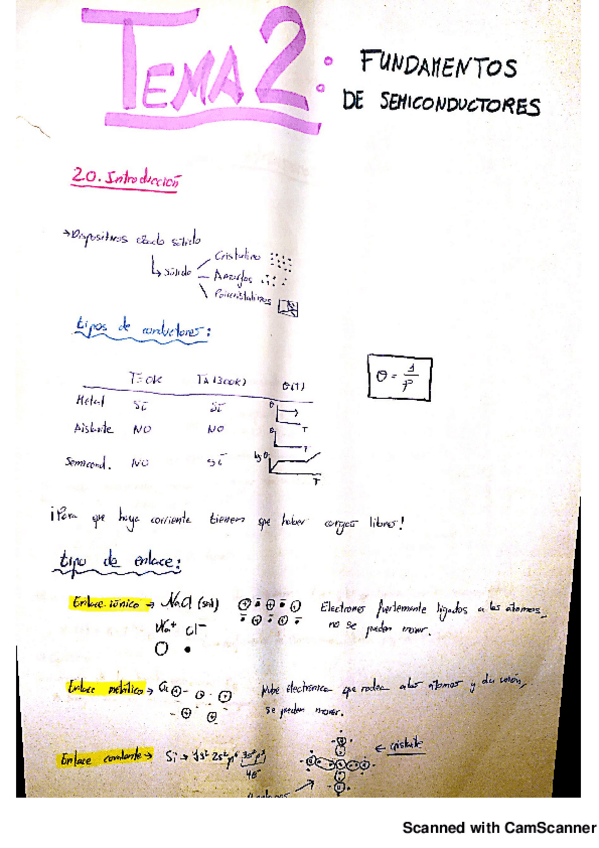 TEMA 2: FUNDAMENTOS
DE SEMICONDUCTORES
2.0. Introducción
→ Dispositivos estado sólido
↳ Sólido
Cristalino
Amorfos
Policristalinos
tipos de conductores:
T=0K TA (300K) θ(T)
Metal SÍ SÍ
Aislante NO NO
Semicond. NO SÍ
log θ
T
θ = 1/ρ
¡Para que haya corriente tienen que haber cargas libres!
tipo de enlace:
Enlace iónico → NaCl (sal) Electrones fuertemente ligados a los átomos,
no se pueden mover.
Na⁺ Cl⁻
Enlace metálico → Cu Nube electrónica que rodea a los átomos y
se pueden mover.
Enlace covalente → Si → 1s² 2s² p⁶ 3s² p²
4e⁻
Scanned with CamScanner